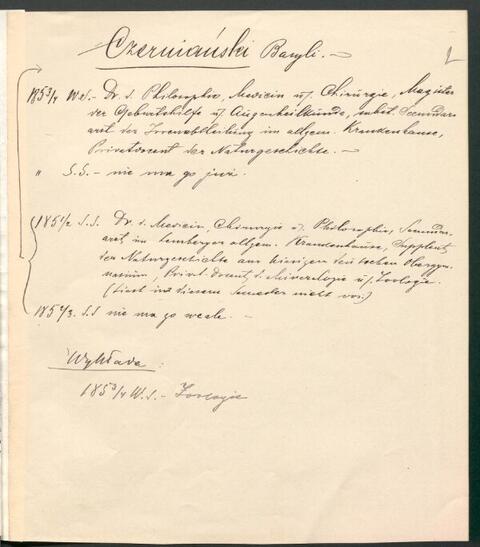 Czerniański Bazyli. —
1853/4 W.S. - Dr. d. Philosophie, Medicin u/. Chirurgie, Magister
der Geburtshilfe u/. Augenheilkunde, subst. Secundar-
arzt der Irrenabtheilung im allgem. Krankenhause,
Privatdocent der Naturgeschichte. —
" S.S. - nie ma go już.
1851/2 S.S. Dr. d. Medicin, Chirurgie u/. Philosophie, Secundar-
arzt im Lemberger allgem. Krankenhause, Supplent
der Naturgeschichte am hiesigen deutschen Obergym-
nasium, Privat-Docent d. Mineralogie u/. Zoologie.
(liest in diesem Semester nicht vor.)
1852/3. S.S nie ma go wcale. —
Wykłada :
1853/4 W.S. - Zoologie